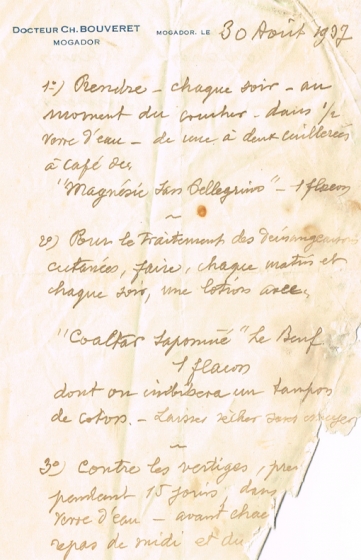 DOCTEUR CH. BOUVERET
MOGADOR
MOGADOR, LE 30 Août 1937
1º) Prendre – chaque soir – au
moment du coucher – dans 1/2
verre d'eau – de une à deux cuillerées
à café de:
"Magnésie San Pellegrino" – 1 flacon
~
2º) Pour le traitement des démangeaisons
cutanées, faire, chaque matin et
chaque soir, une lotion avec:
"Coaltar saponiné" Le Beuf
1 flacon
dont on imbibera un tampon
de coton. – Laisser sécher sans essuyer
~
3º) Contre les vertiges,
pendant 15 jours, dans
verre d'eau – avant
repas de midi et du